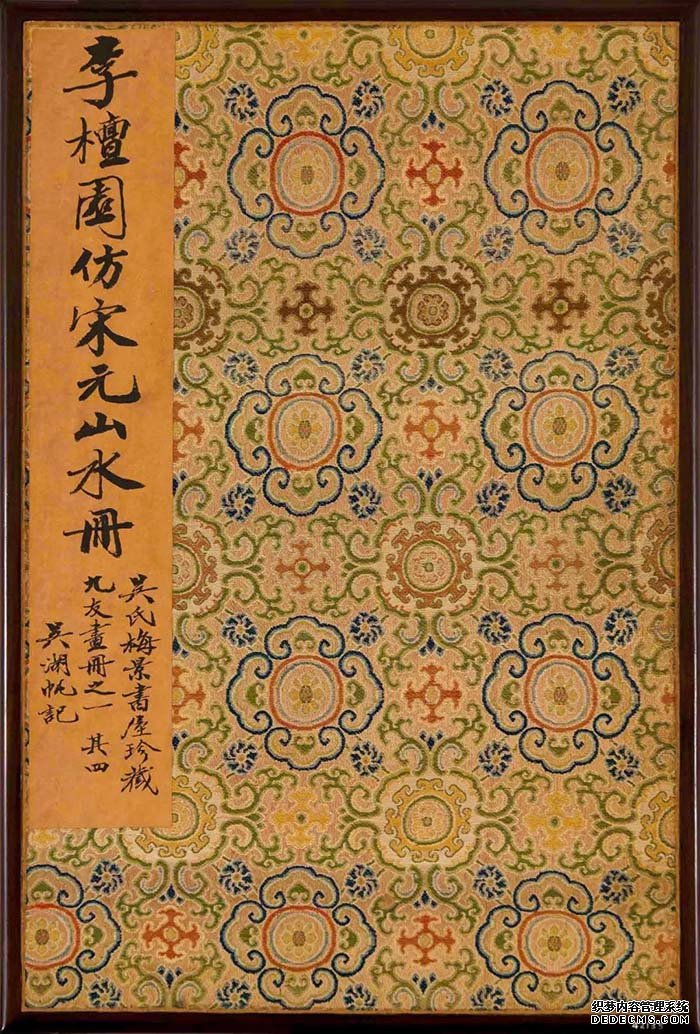 李檀園仿宋元山水冊
吳氏梅景書屋珍藏
九友畫冊之一 其四
吳湖帆記
织梦内容管理系统
DEDECMS.COM